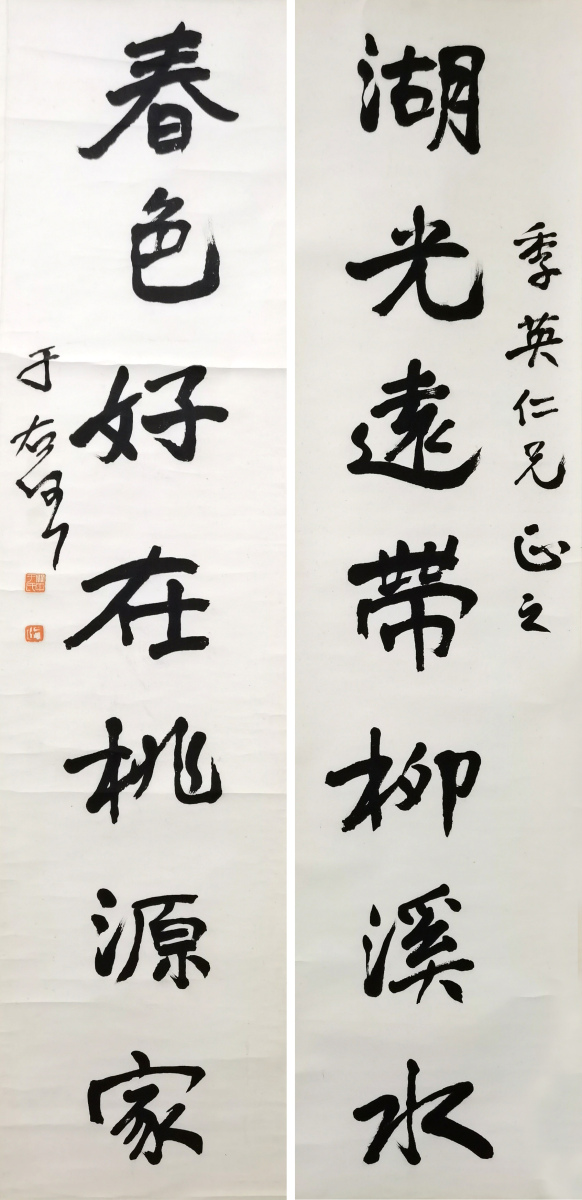 季英仁兄正之
湖光遠帶柳溪水
春色好在桃源家
于右任